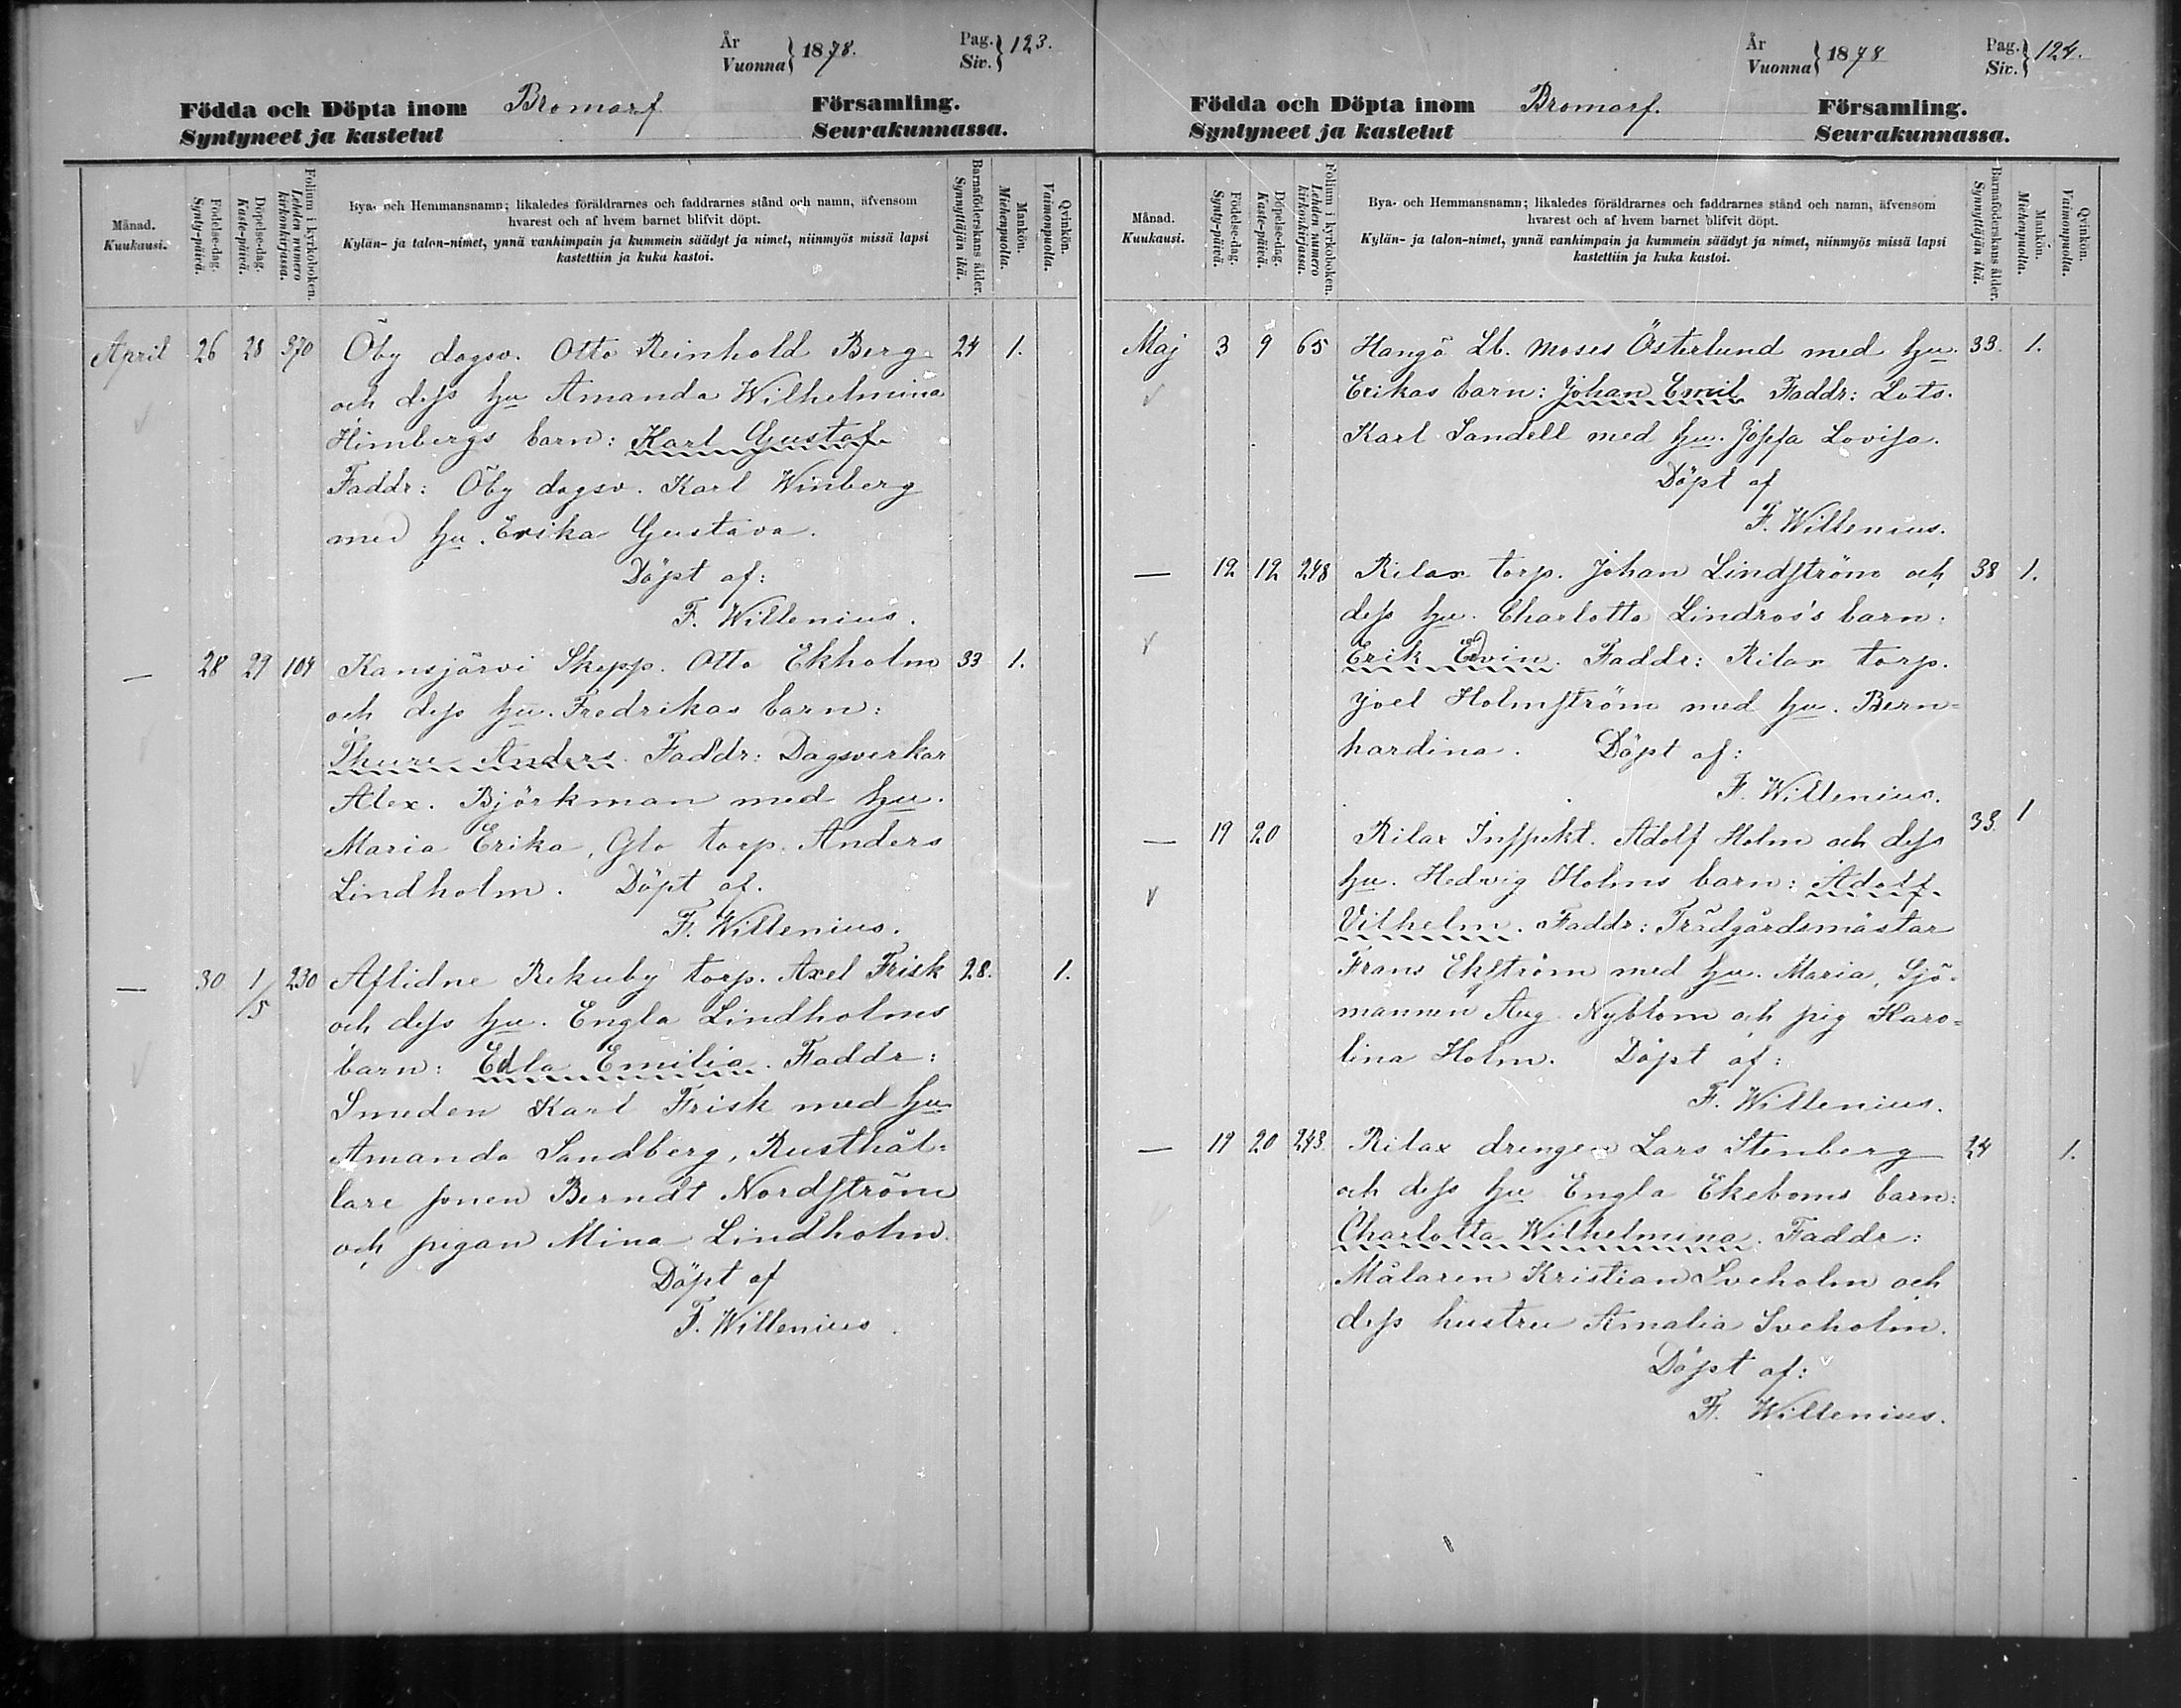 År
Vuonna } 1878.
Pag.
Siv. } 123.
Födda och Döpta inom Bromarf Församling.
Syntyneet ja kastetut Seurakunnassa.
Månad.
Kuukausi.
Födelse-dag.
Synty-päivä.
Döpelse-dag.
Kaste-päivä.
Folium i kyrkoboken.
Lehden numero
kirkonkirjassa.
Bya- och Hemmansnamn; likaledes föräldrarnes och faddrarnes stånd och namn, äfvensom
hvarest och af hvem barnet blifvit döpt.
Kylän- ja talon-nimet, ynnä vanhimpain ja kummein säädyt ja nimet, niinmyös missä lapsi
kastettiin ja kuka kastoi.
Barnaföderskans ålder.
Synnyttäjän ikä.
Mankön.
Miehenpuolia.
Qvinkön.
Vaimonpuolia.
April 26 28 370 Öby dagsv. Otto Reinhold Berg 24 1.
och dess hu Amanda Wilhelmina
Himbergs barn: Karl Gustaf
Faddr: Öby dagsv. Karl Winberg
med hu. Erika Gustava.
Döpt af:
F. Willenius.
— 28 29 104 Kansjärvi Skepp. Otto Ekholm 33 1.
och dess hu. Fredrikas barn:
Thure Anders. Faddr: Dagsverkar
Alex. Björkman med hu.
Maria Erika, Glo torp. Anders
Lindholm. Döpt af.
F. Willenius.
— 30 1/5 230 Aflidne Rekuby torp. Axel Frisk 28. 1.
och dess hu. Engla Lindholms
barn: Edla Emilia. Faddr:
Smeden Karl Frisk med hu
Amanda Sandberg, Rusthål=
lare sonen Berndt Nordström
och pigan Mina Lindholm.
Döpt af
F. Willenius.
År
Vuonna } 1878
Pag.
Siv. } 124.
Födda och Döpta inom Bromarf. Församling.
Syntyneet ja kastetut Seurakunnassa.
Månad.
Kuukausi.
Födelse-dag.
Synty-päivä.
Döpelse-dag.
Kaste-päivä.
Folium i kyrkoboken.
Lehden numero
kirkonkirjassa.
Bya- och Hemmansnamn; likaledes föräldrarnes och faddrarnes stånd och namn, äfvensom
hvarest och af hvem barnet blifvit döpt.
Kylän- ja talon-nimet, ynnä vanhimpain ja kummein säädyt ja nimet, niinmyös missä lapsi
kastettiin ja kuka kastoi.
Barnaföderskans ålder.
Synnyttäjän ikä.
Mankön.
Miehenpuolia.
Qvinkön.
Vaimonpuolia.
Maj 3 9 65 Hangö Lb. Moses Österlund med hu. 33. 1.
Erikas barn: Johan Emil Faddr: Lots.
Karl Sandell med hu. Josefa Lovisa.
Döpt af
F. Willenius.
— 12 12 248 Rilax torp. Johan Lindström och 38 1.
dess hu. Charlotta Lindros's barn:
Erik Edvin. Faddr: Rilax torp.
Joel Holmström med hu. Bern=
hardina. Döpt af:
F. Willenius.
— 19 20 Rilax Inspekt. Adolf Holm och dess 33. 1
hu. Hedvig Holms barn: Adolf
Vilhelm. Faddr: Trädgårdsmästar
Frans Ekström med hu. Maria, Sjö-
mannen Aug. Nyblom och pig Karo=
lina Holm. Döpt af:
F. Willenius.
— 19 20 243. Rilax drengen Lars Stenberg 24 1.
och dess hu Engla Ekeboms barn:
Charlotta Wilhelmina. Faddr:
Målaren Kristian Sveholm och
dess hustru Amalia Sveholm.
Döpt af:
F. Willenius.